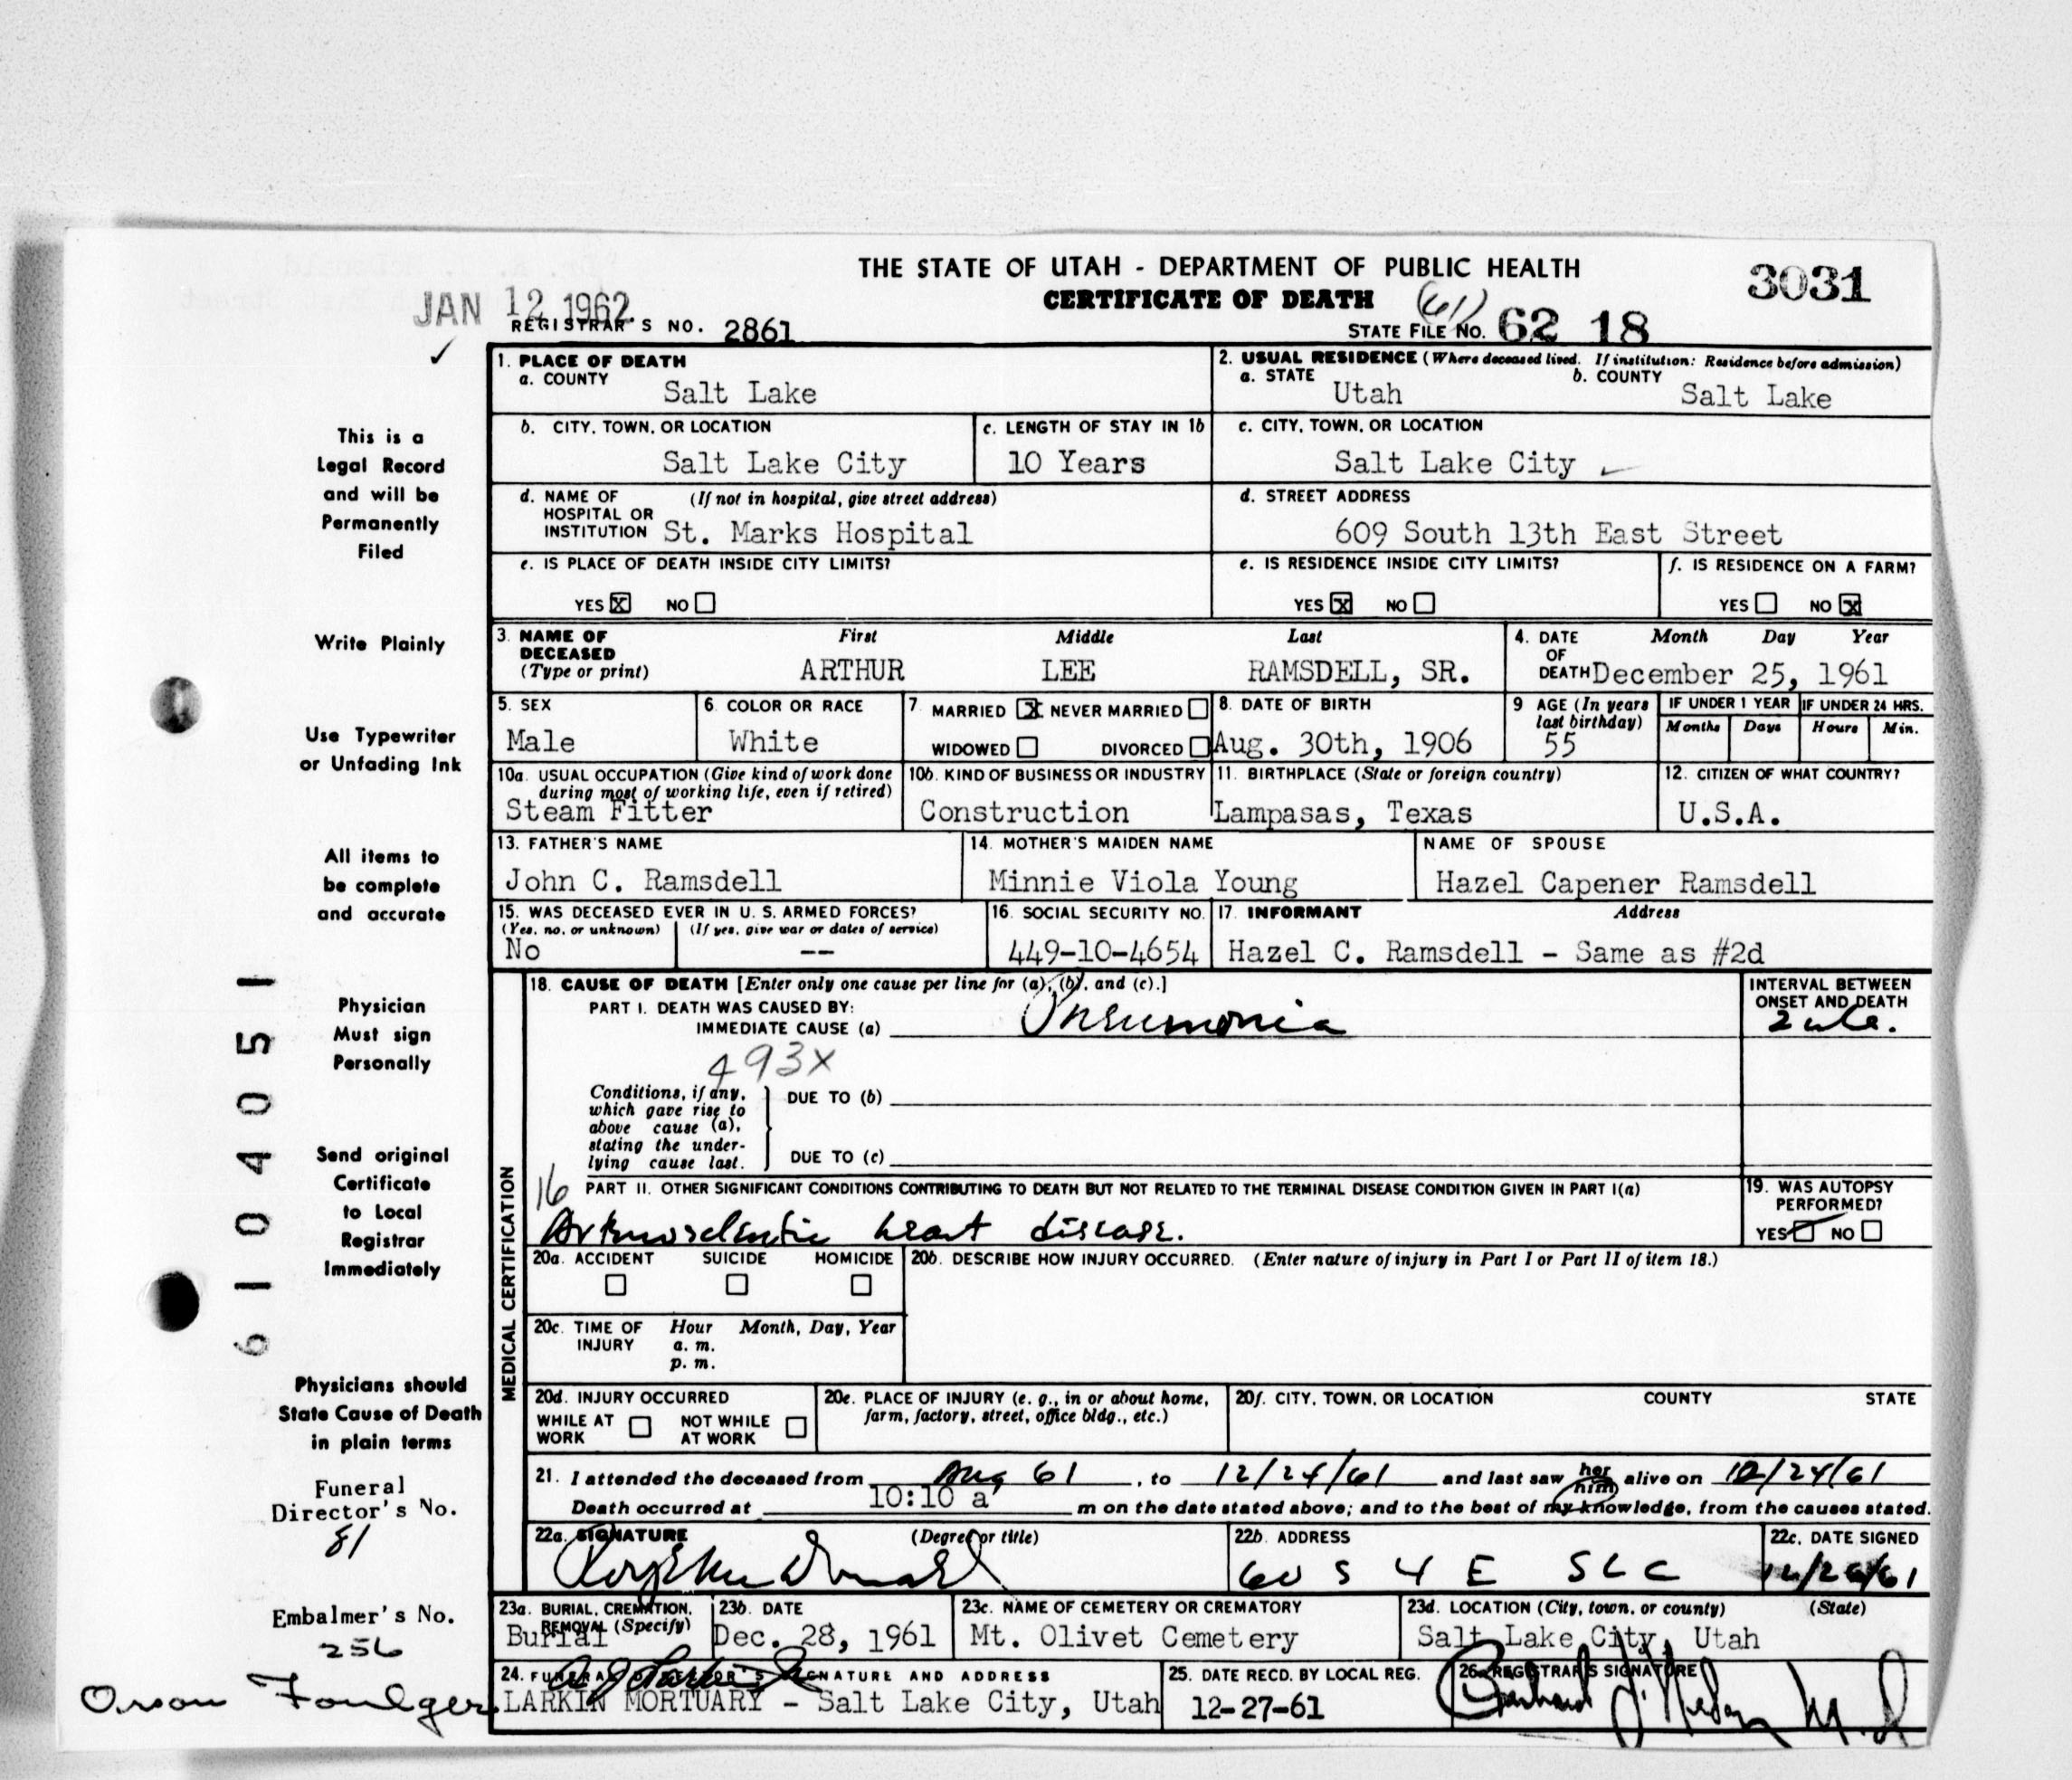 THE STATE OF UTAH - DEPARTMENT OF PUBLIC HEALTH
3031
CERTIFICATE OF DEATH
(61)
JAN 12 1962
REGISTRAR'S NO. 2861
STATE FILE NO. 62 18
1. PLACE OF DEATH
a. COUNTY Salt Lake
2. USUAL RESIDENCE (Where deceased lived. If institution: Residence before admission)
a. STATE Utah b. COUNTY Salt Lake
b. CITY, TOWN, OR LOCATION Salt Lake City
c. LENGTH OF STAY IN 1b 10 Years
c. CITY, TOWN, OR LOCATION Salt Lake City
d. NAME OF HOSPITAL OR INSTITUTION (If not in hospital, give street address) St. Marks Hospital
d. STREET ADDRESS 609 South 13th East Street
e. IS PLACE OF DEATH INSIDE CITY LIMITS?
YES X NO
e. IS RESIDENCE INSIDE CITY LIMITS?
YES X NO
f. IS RESIDENCE ON A FARM?
YES NO X
3. NAME OF DECEASED (Type or print) First Middle Last
ARTHUR LEE RAMSDELL, SR.
4. DATE OF DEATH Month Day Year
December 25, 1961
5. SEX Male
6. COLOR OR RACE White
7. MARRIED X NEVER MARRIED
WIDOWED DIVORCED
8. DATE OF BIRTH Aug. 30th, 1906
9 AGE (In years last birthday) 55
IF UNDER 1 YEAR Months Days
IF UNDER 24 HRS. Hours Min.
10a. USUAL OCCUPATION (Give kind of work done during most of working life, even if retired) Steam Fitter
10b. KIND OF BUSINESS OR INDUSTRY Construction
11. BIRTHPLACE (State or foreign country) Lampasas, Texas
12. CITIZEN OF WHAT COUNTRY? U.S.A.
13. FATHER'S NAME John C. Ramsdell
14. MOTHER'S MAIDEN NAME Minnie Viola Young
NAME OF SPOUSE Hazel Capener Ramsdell
15. WAS DECEASED EVER IN U. S. ARMED FORCES?
(Yes, no, or unknown) No
(If yes, give war or dates of service) --
16. SOCIAL SECURITY NO. 449-10-4654
17. INFORMANT Address
Hazel C. Ramsdell - Same as #2d
MEDICAL CERTIFICATION
18. CAUSE OF DEATH [Enter only one cause per line for (a), (b), and (c).]
PART I. DEATH WAS CAUSED BY:
IMMEDIATE CAUSE (a) Pneumonia
INTERVAL BETWEEN ONSET AND DEATH
493X
Conditions, if any, which gave rise to above cause (a), stating the underlying cause last.
DUE TO (b)
DUE TO (c)
16
PART II. OTHER SIGNIFICANT CONDITIONS CONTRIBUTING TO DEATH BUT NOT RELATED TO THE TERMINAL DISEASE CONDITION GIVEN IN PART I(a)
Arteriosclerotic heart disease.
19. WAS AUTOPSY PERFORMED?
YES NO
20a. ACCIDENT SUICIDE HOMICIDE
20b. DESCRIBE HOW INJURY OCCURRED. (Enter nature of injury in Part I or Part II of item 18.)
20c. TIME OF INJURY Hour Month, Day, Year
a. m.
p. m.
20d. INJURY OCCURRED
WHILE AT WORK NOT WHILE AT WORK
20e. PLACE OF INJURY (e. g., in or about home, farm, factory, street, office bldg., etc.)
20f. CITY, TOWN, OR LOCATION COUNTY STATE
21. I attended the deceased from Aug 61, to 12/24/61 and last saw her him alive on 12/24/61
Death occurred at 10:10 a m on the date stated above; and to the best of my knowledge, from the causes stated.
22a. SIGNATURE (Degree or title)
22b. ADDRESS
S 4 E SLC
22c. DATE SIGNED
12/26/61
23a. BURIAL, CREMATION, REMOVAL (Specify) Burial
23b. DATE Dec. 28, 1961
23c. NAME OF CEMETERY OR CREMATORY Mt. Olivet Cemetery
23d. LOCATION (City, town, or county) (State) Salt Lake City, Utah
24. FUNERAL DIRECTOR'S SIGNATURE AND ADDRESS
LARKIN MORTUARY - Salt Lake City, Utah
25. DATE RECD. BY LOCAL REG. 12-27-61
26. REGISTRAR'S SIGNATURE
This is a
Legal Record
and will be
Permanently
Filed
Write Plainly
Use Typewriter
or Unfading Ink
All items to
be complete
and accurate
Physician
Must sign
Personally
Send original
Certificate
to Local
Registrar
Immediately
Physicians should
State Cause of Death
in plain terms
Funeral
Director's No.
81
Embalmer's No.
256
Orson Foulger
6104051